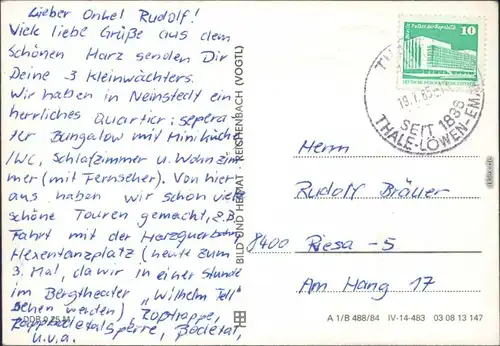 Lieber Onkel Rudolf!
Viele liebe Grüße aus dem
schönen Harz senden Dir
Deine 3 Kleinwächters.
Wir haben in Neinstedt ein
herrliches Quartier: sepera-
ter Bungalow mit Miniküche
/WC, Schlafzimmer u. Wohnzim-
mer (mit Fernseher). Von hier
aus haben wir schon viele
schöne Touren gemacht, z.B.
Fahrt mit der Harzquerbahn,
Hexentanzplatz (heute zum
3. Mal, da wir in einer Stunde
im Bergtheater „Wilhelm Tell"
sehen werden), Roßtrappe,
Rappbodetalsperre, Bodetal,
u.v.a.
DDR 0,25 M
BILD UND HEIMAT · REICHENBACH (VOGTL)
10
SEIT 1836
THALE-LÖWEN-EM
Herrn
Rudolf Bräuer
8400 Riesa -5
Am Hang 17
A 1/B 488/84 IV-14-483 03 08 13 147